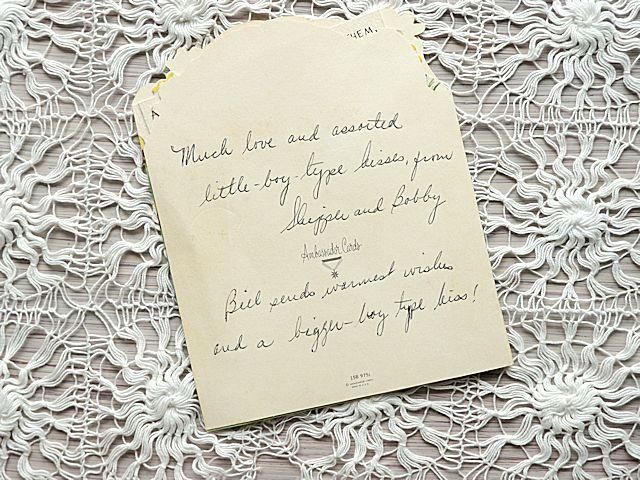 THEM.
A
Much love and assorted
little-boy-type kisses, from
Skipper and Bobby
Ambassador Cards
Bill sends warmest wishes
and a bigger-boy type kiss!
15B 975j